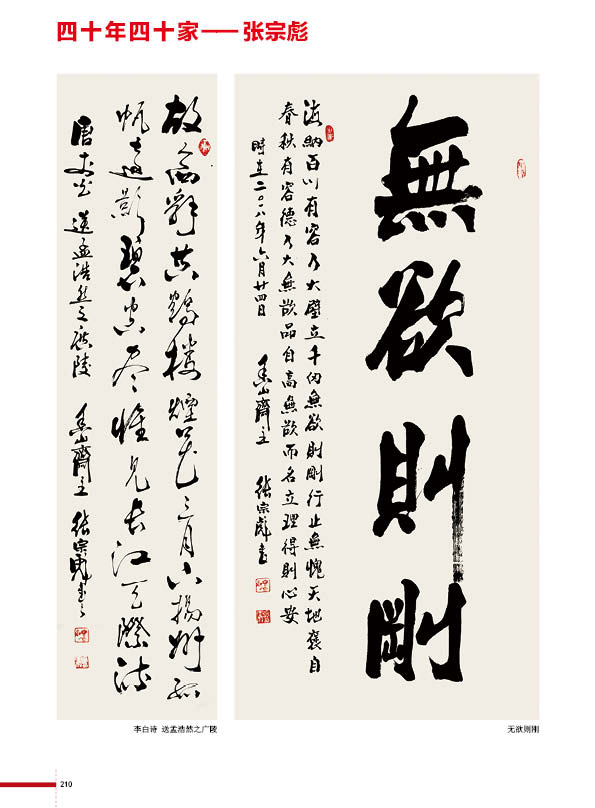 四十年四十家——张宗彪
無欲則剛
海納百川有容乃大壁立千仞無欲則剛行止無愧天地褒自
春秋有容德乃大無欲品自高無欲而名立理得則心安
時在二〇一八年六月廿四日 山齋主 張宗彪書
故人西辭黃鶴楼煙花三月下揚州孤
帆遠影碧空尽惟見長江天際流
唐李白 送孟浩然之廣陵 山齋主 張宗彪書
李白诗 送孟浩然之广陵
无欲则刚
210